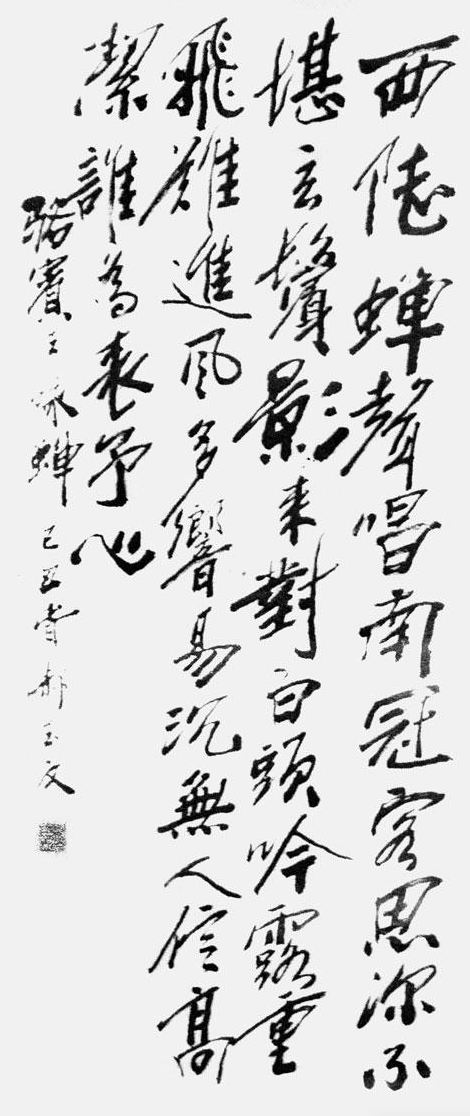 西陸蟬聲唱南冠客思深不
堪玄鬢影来對白頭吟露重
飛難進風多響易沉無人信高
潔誰為表予心
駱賓王咏蟬己丑郝玉文